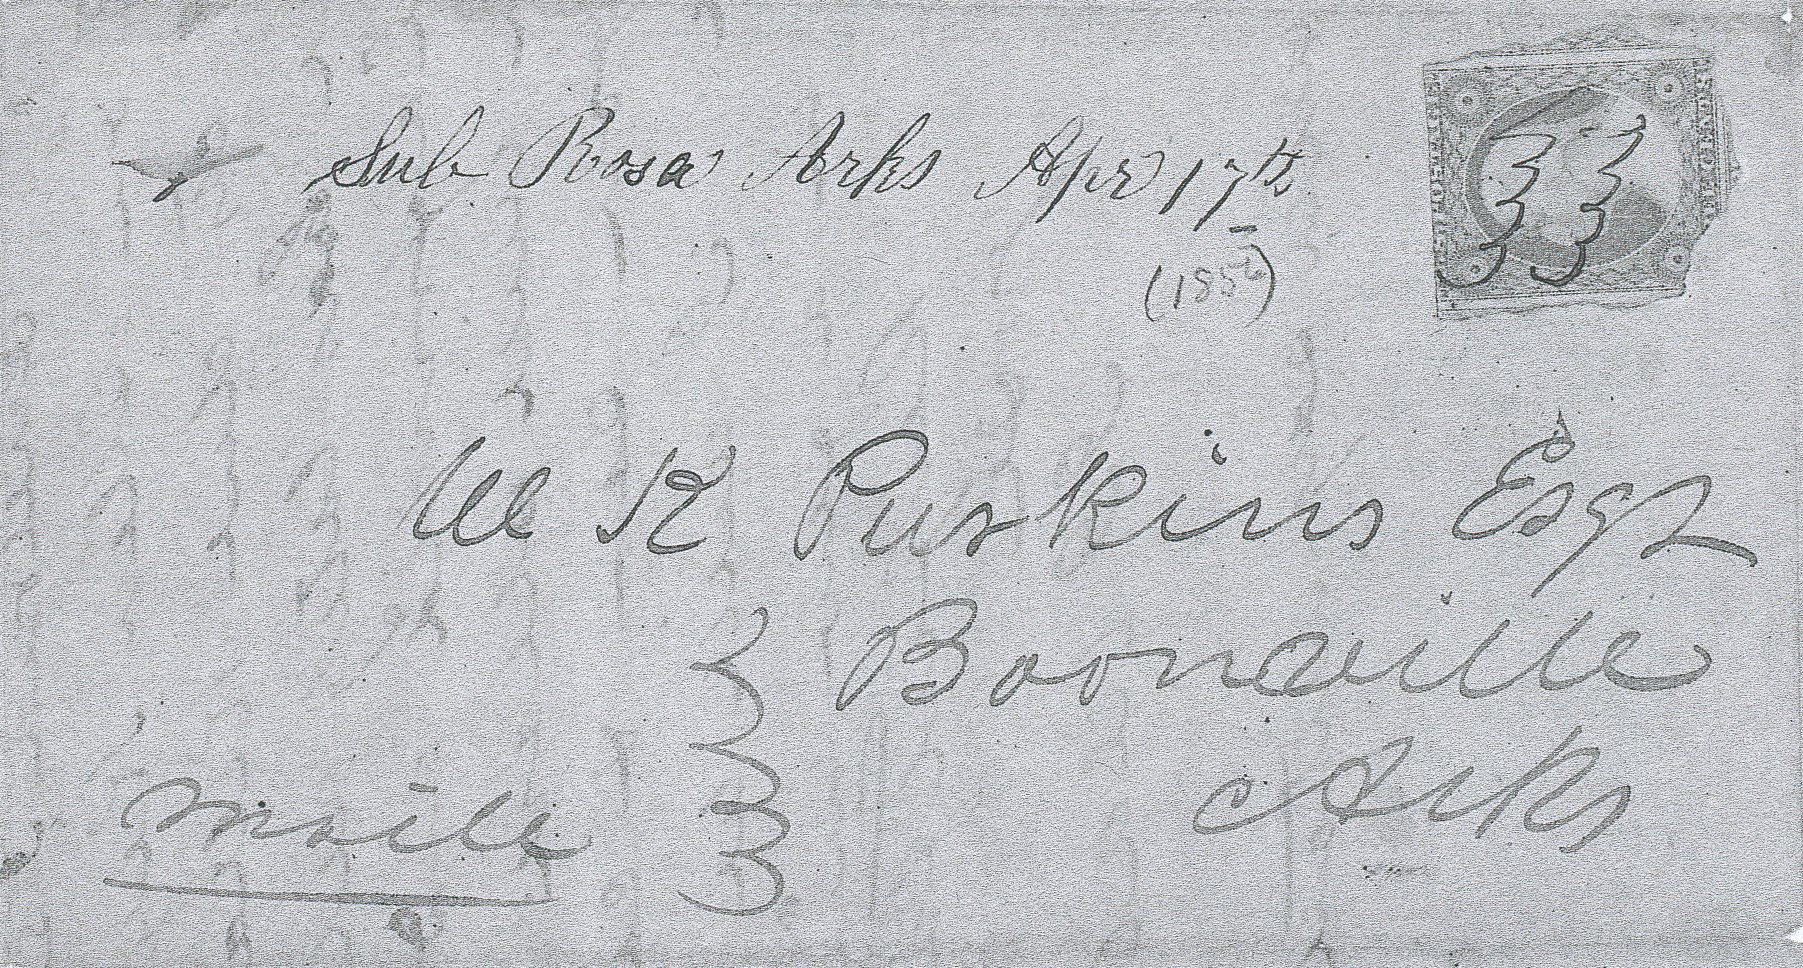 Sub Rosa Arks Apr 17th
(1852)
W K Perkins Esqr
Booneville
Arks
Maile